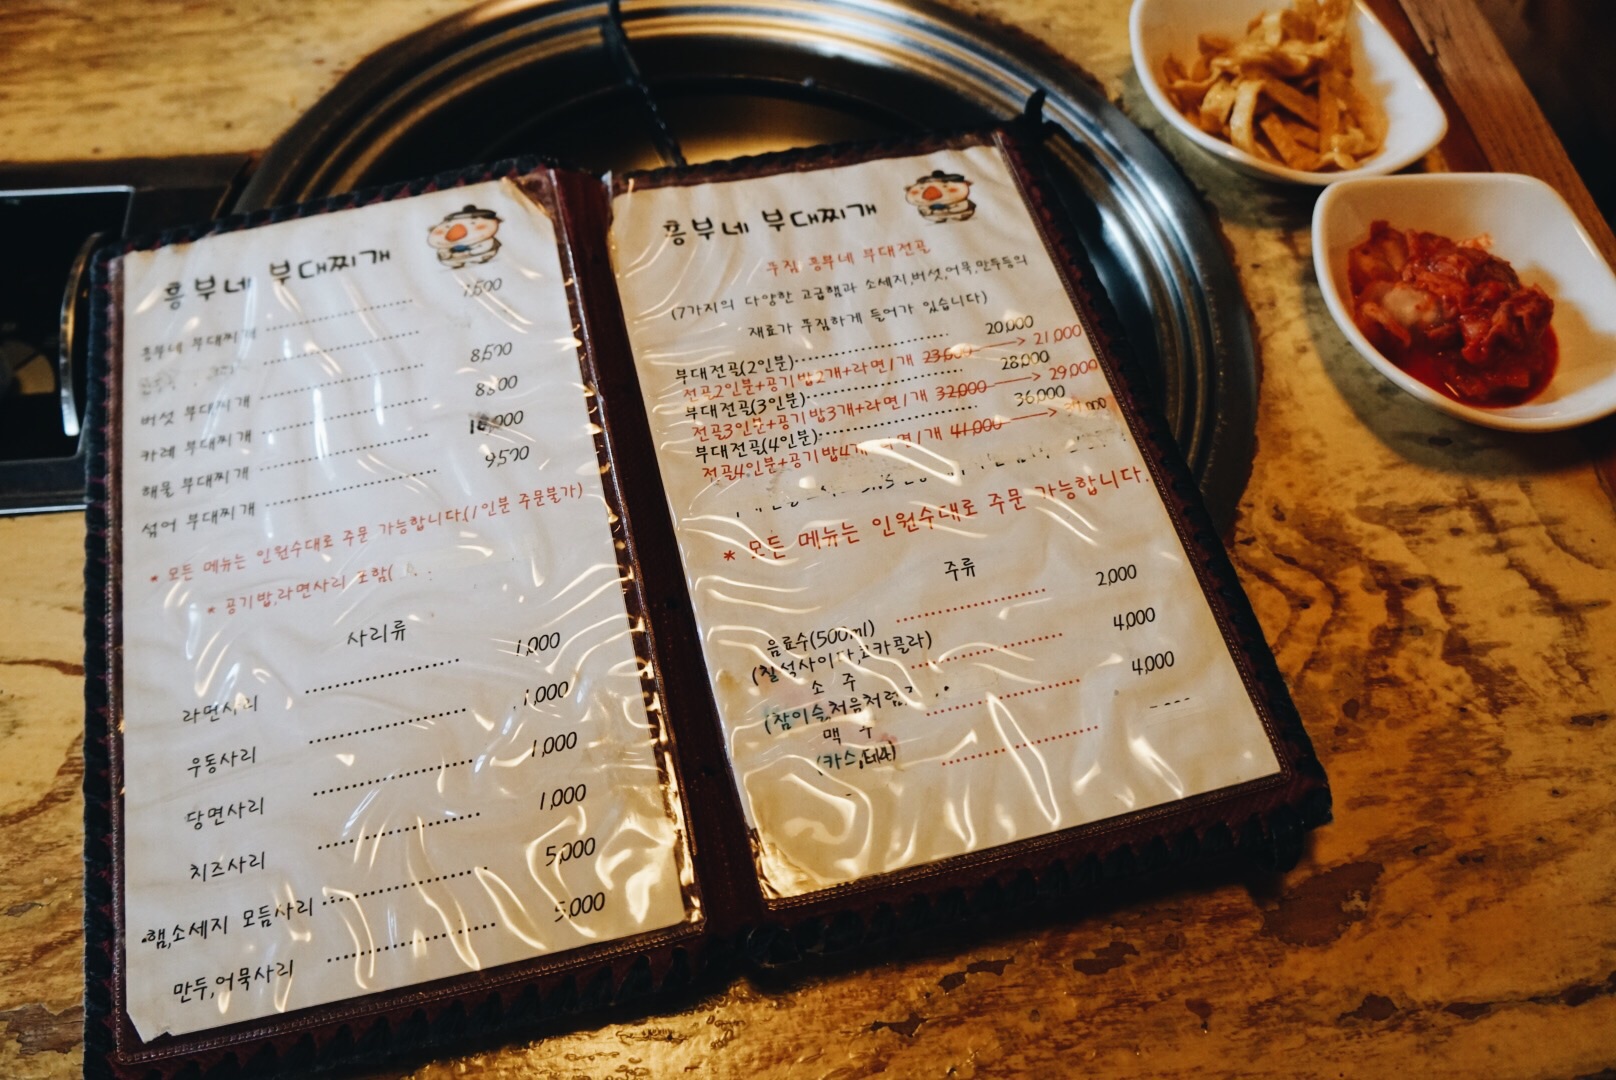 흥부네 부대찌개
흥부네 부대찌개 7,500
버섯 부대찌개 8,500
카레 부대찌개
해물 부대찌개
섬어 부대찌개 9,500
* 모든 메뉴는 인원수대로 주문 가능합니다.(1인분 주문불가)
* 공기밥,라면사리 포함(
사리류
라면사리 1,000
우동사리 1,000
당면사리 1,000
치즈사리 1,000
햄,소세지 모듬사리 5,000
만두,어묵사리 5,000
흥부네 부대찌개
푸짐 흥부네 부대전골
(7가지의 다양한 고급햄과 소세지,버섯,어묵,만두등의
재료가 푸짐하게 들어가 있습니다)
부대전골(2인분) 20,000
전골2인분+공기밥2개+라면1개 23,000 → 21,000
부대전골(3인분) 28,000
전골3인분+공기밥3개+라면1개 32,000 → 29,000
부대전골(4인분) 36,000
전골4인분+공기밥4개 라면1개 41,000 →
* 모든 메뉴는 인원수대로 주문 가능합니다.
주류
음료수(500ml) 2,000
(칠성사이다,코카콜라)
소 주 4,000
(참이슬,처음처럼,
맥 주 4,000
(카스,테라)